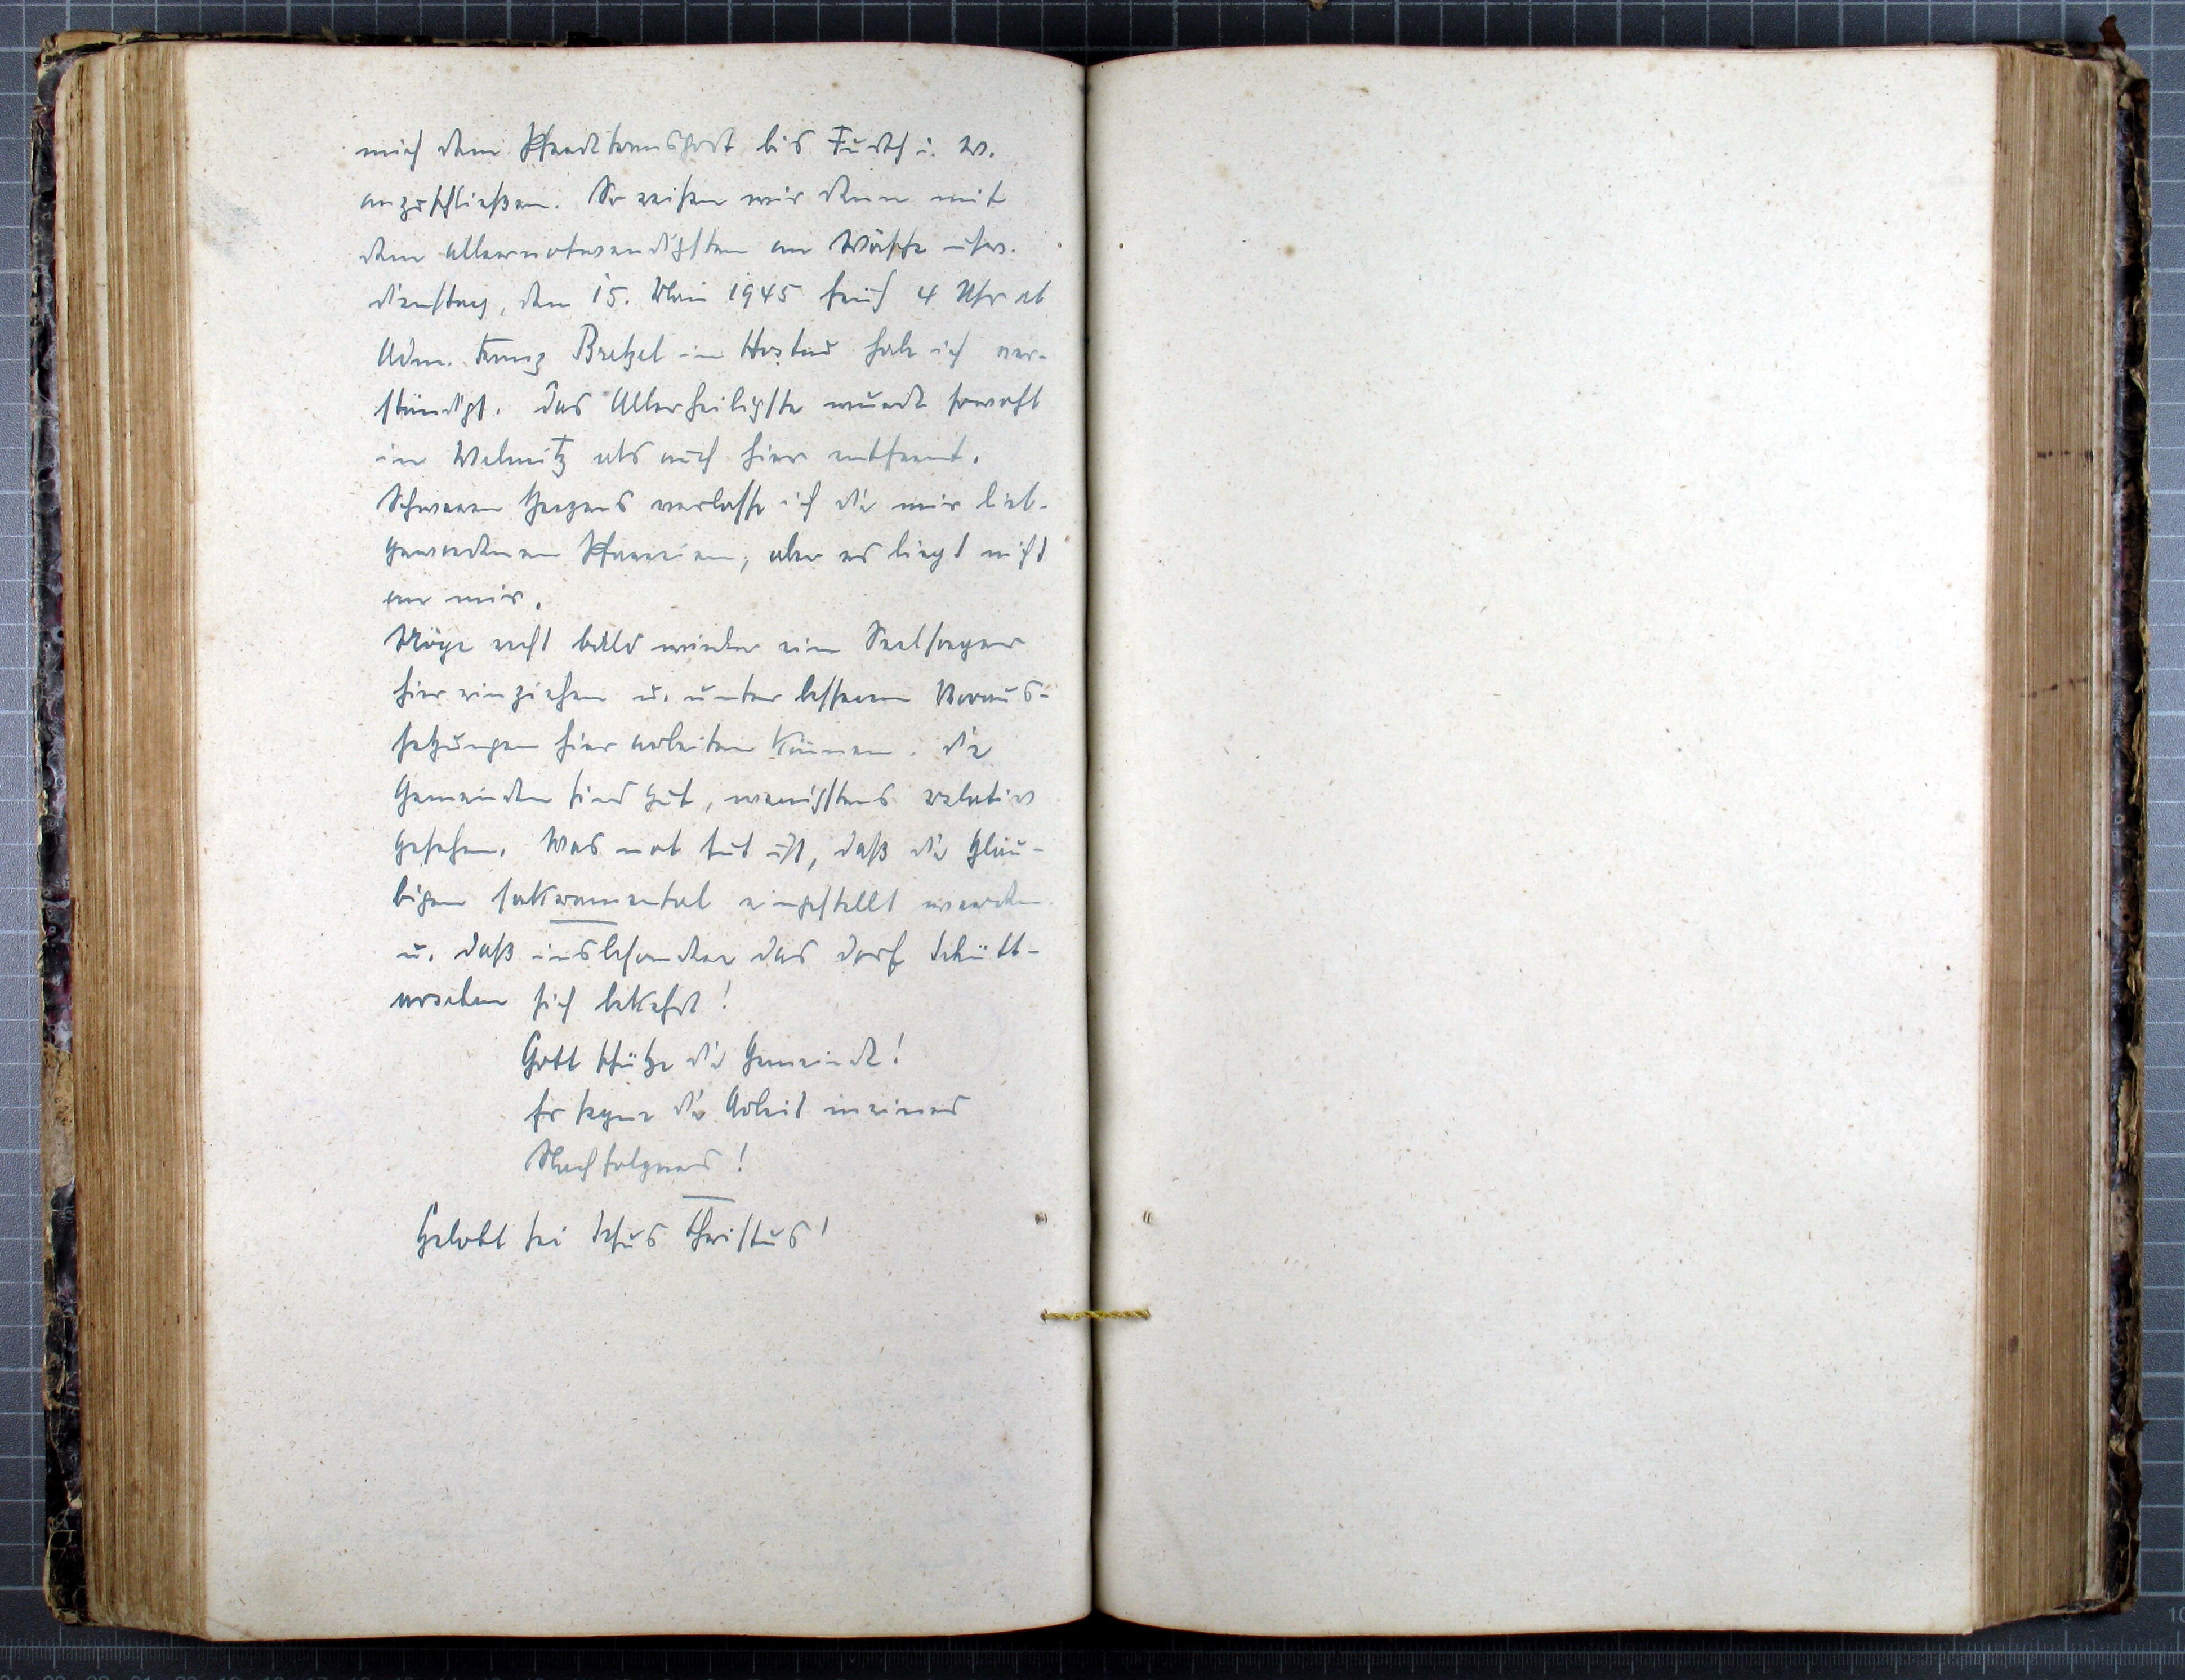 mich dem Pferdetransport bis Furth i. W.
anzuschließen. So reisen wir denn mit
dem allernotwendigsten an Wäsche usw.
Dienstag, den 15. Mai 1945 früh 4 Uhr ab
Adm. Franz Bretzel in Hostau habe ich ver-
ständigt. Das Allerheiligste wurde sowohl
in Melmitz als auch hier entfernt.
Schweren Herzens verlasse ich die mir lieb-
gewordenen Pfarreien, aber es liegt nicht
an mir.
Möge recht bald wieder ein Seelsorger
hier einziehen u. unter besseren Voraus-
setzungen hier arbeiten können. Die
Gemeinden sind gut, wenigstens relativ
gesehen. Was not tut ist, daß die Gläu-
bigen sakramental eingestellt werden
u. daß insbesondere das Dorf Schütt-
arschen sich bekehrt!
Gott schütze die Gemeinde!
Er segne die Arbeit meines
Nachfolgers!
Gelobt sei Jesus Christus!